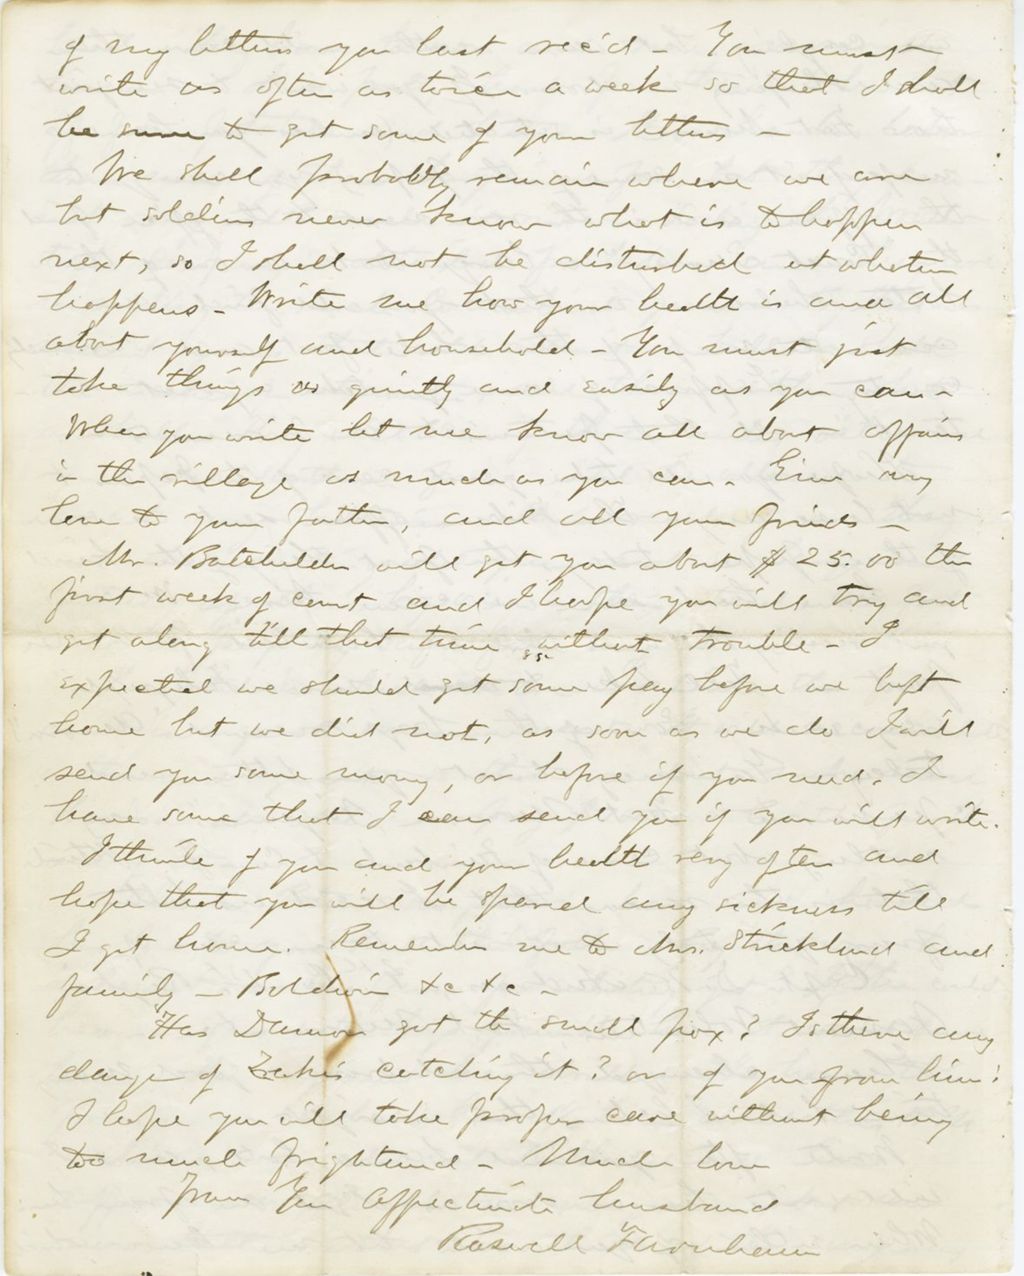 of my letters you last rec'd – You must
write as often as twice a week so that I shall
be sure to get some of your letters –
We shall probably remain where we are
but soldiers never know what is to happen
next, so I shall not be disturbed at whatever
happens – Write me how your health is and all
about yourself and household – You must just
take things as quietly and easily as you can –
When you write let me know all about affairs
in the village as much as you can. Give my
love to your father, and all your friends –
Mr. Batchelder will get you about $25.00 the
first week of court and I hope you will try and
get along till that time without trouble – I
expected we should get some pay before we left
home but we did not, as soon as we do I will
send you some money, or before if you need. I
have some that I can send you if you will write.
I think of you and your health very often and
hope that you will be spared any sickness till
I get home. Remember me to Mrs. Strickland and
family – Baldwin &c &c –
Has Damon got the small pox? Is there any
danger of Zeke's catching it? or of you from him?
I hope you will take proper care without being
too much frightened – Much love
From Your Affectionate husband
Roswell Farnham